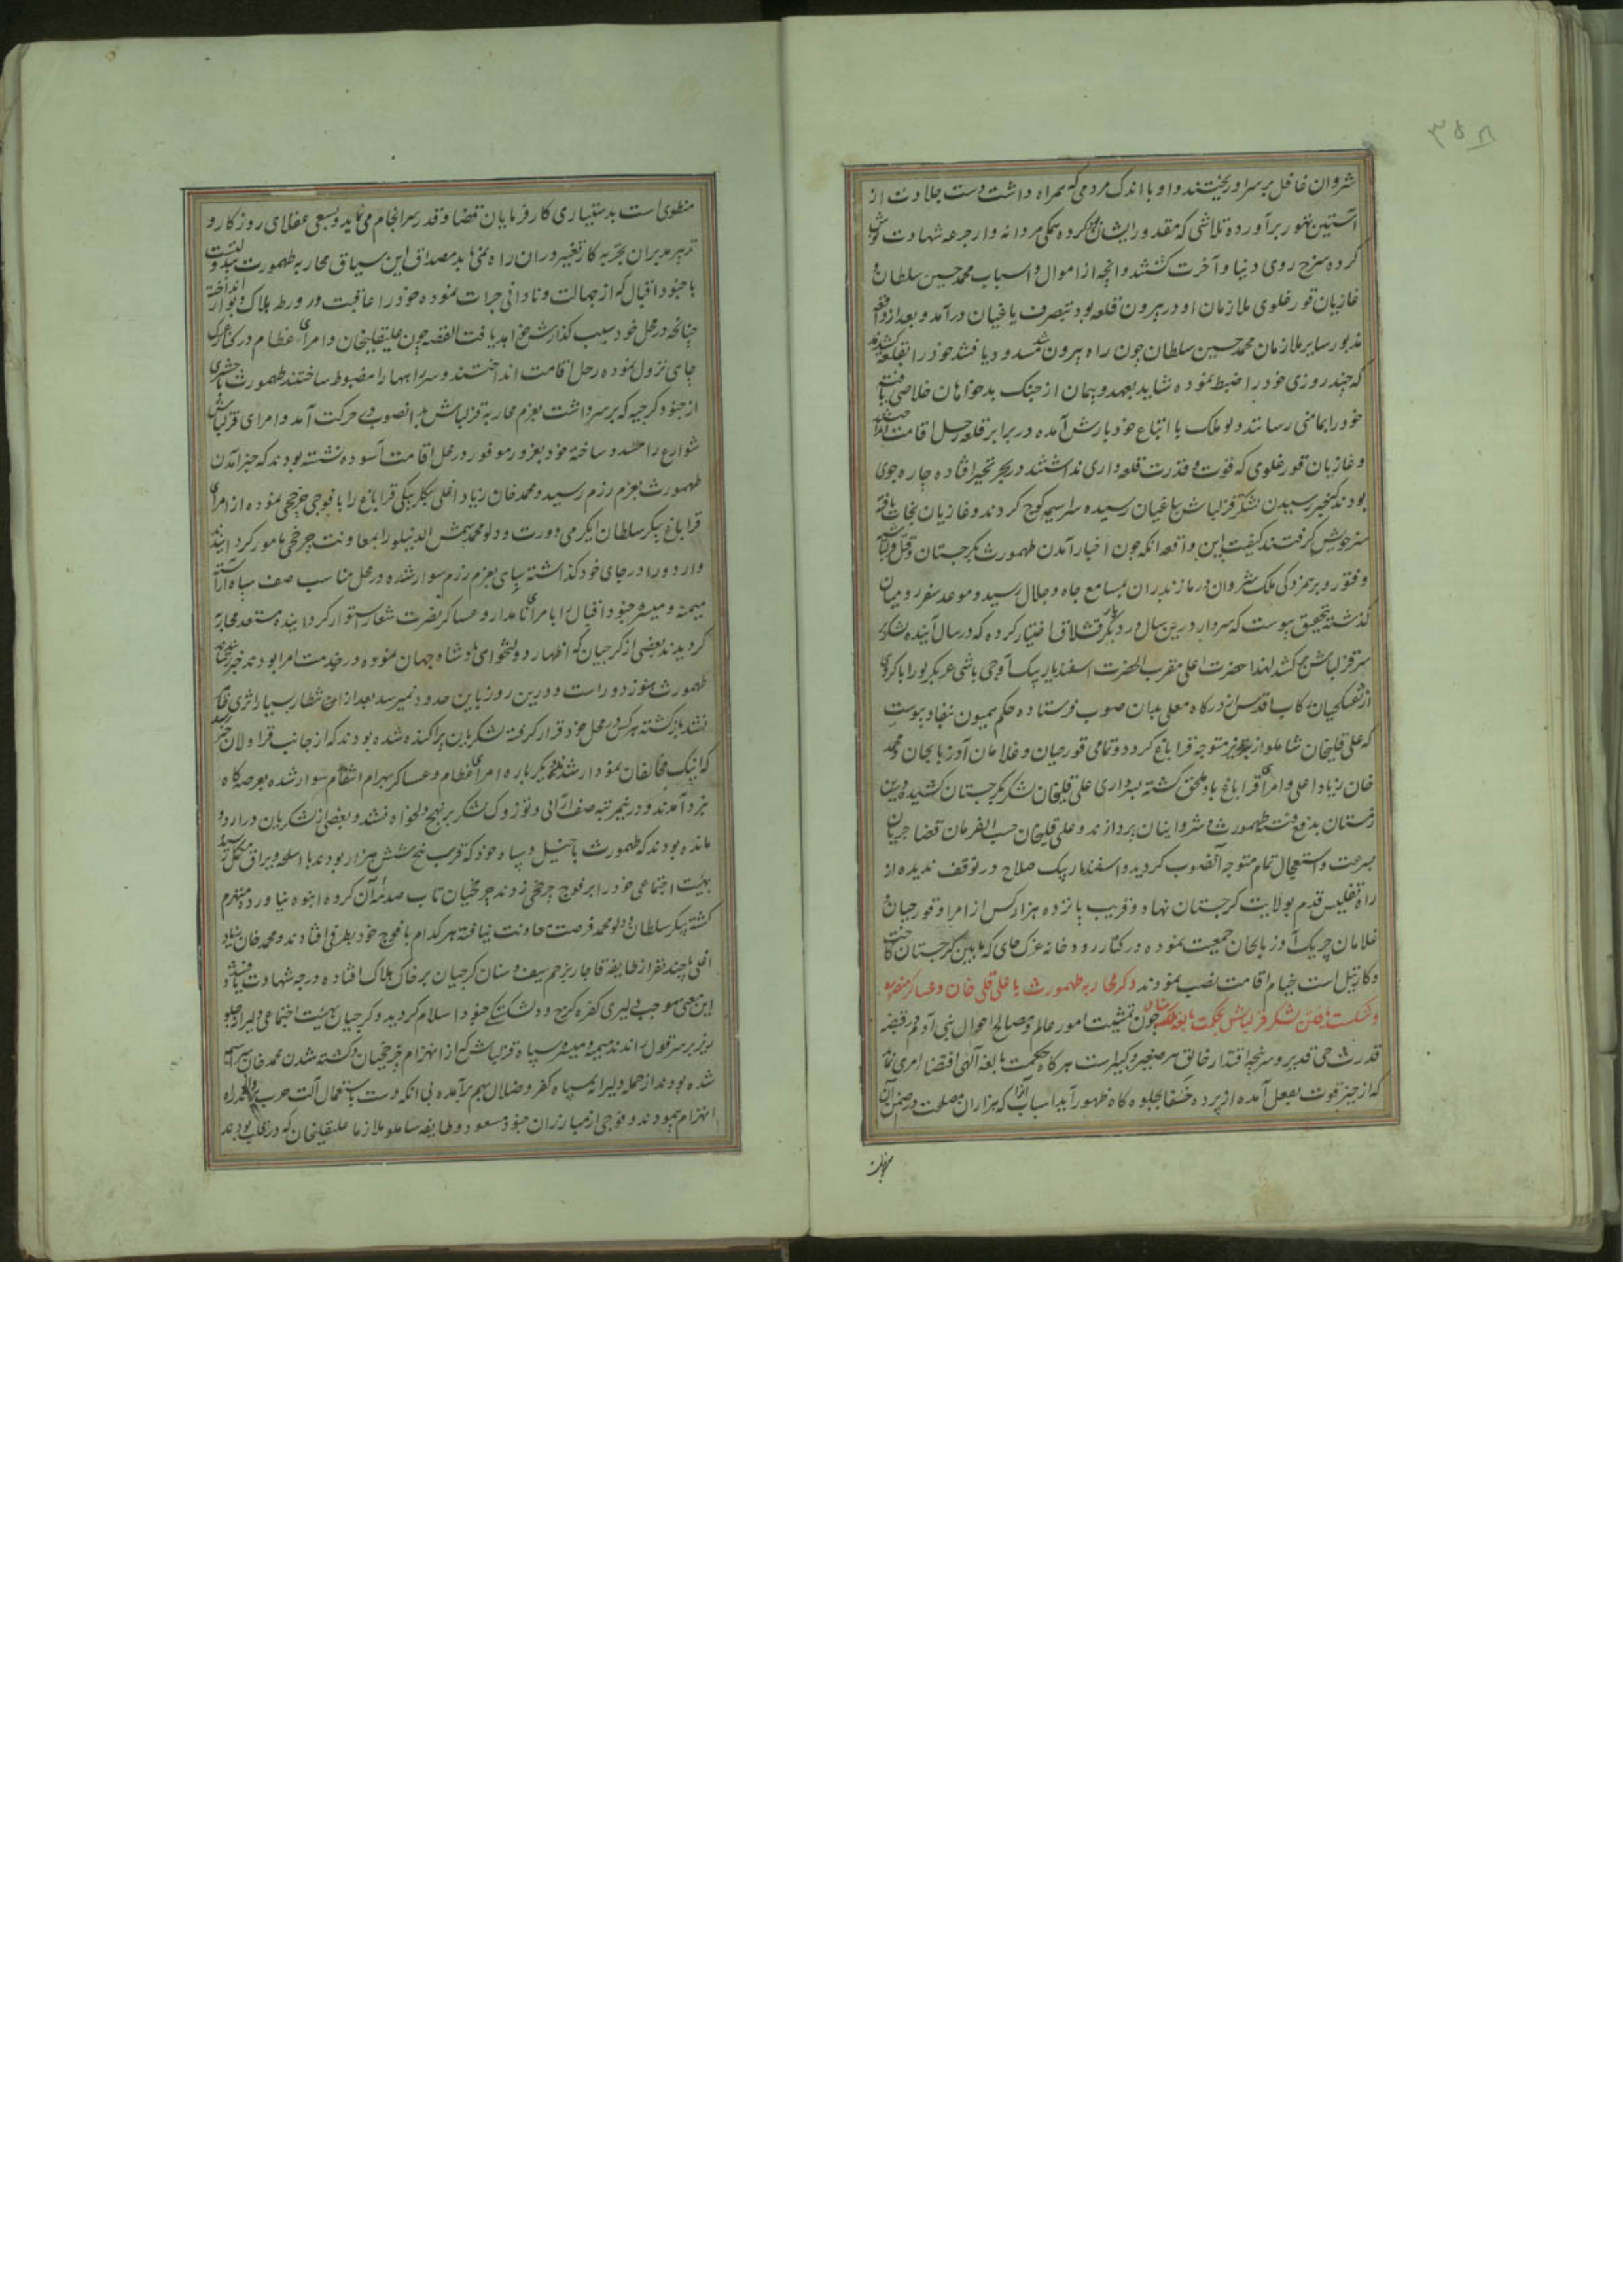 ۳۵۸
شروان غافل بر سر او ریختند و او با اندک مردمی که همراه داشت دست جلادت از
آستین تهور برآورده تلاشی که مقدور ایشان بود کرده همگی مردانه وار جرعه شهادت نوش
کرده سرخ روی دنیا و آخرت گشتند و آنچه از اموال و اسباب محمد حسین سلطان و
غازیان قورغلوی ملازمان او در بیرون قلعه بود بتصرف یاغیان درآمد و بعد از واقعه
مذبور سایر ملازمان محمد حسین سلطان چون راه بیرون شد مسدود یافتند خود را بقلعه کشیدند
که چند روزی خود را ضبط نموده شاید بعهد و پیمان از جنک بدخواهان خلاصی یافته
خود را بمامنی رسانند و لوملک با اتباع خود بارش آمده در برابر قلعه رحل اقامت
و غازیان قورغلوی که قوت و قدرت قلعه داری نداشتند در بحر تحیر افتاده چاره جوی
بودند که خبر رسیدن لشکر قزلباش بیاغیان رسیده سراسیمه کوچ کردند و غازیان نجات یافته
سر خویش گرفتند کیفیت این واقعه آنکه چون اخبار آمدن طهمورث بگرجستان و قتل
و فتور و برهمزدکی ملک شروان در مازندران بمسامع جاه و جلال رسید و موعد سفر رومیان
گذشته بتحقیق پیوست که سردار درین سال در دیار بکر قشلاق اختیار کرده که در سال آینده لشکر بر
سر قزلباش کشد لهذا حضرت اعلی مقرب الحضرت اسفندیار بیک آوچی باشی عربکرلو را با کروهی
از تفنکچیان رکاب اقدس از درکاه معلی بدان صوب فرستاده حکم همیون بنفاذ پیوست
که علی قلیخان شاملو از تبریز متوجه قراباغ گردد و تمامی قورچیان و غلامان آذربایجان و محمد
خان زیاد اغلی و امرای قراباغ باو ملحق گشته بسرداری علی قلیخان لشکر بگرجستان کشیده درین
زمستان بدفع فتنه طهمورث و شروانیان پردازند و علی قلیخان حسب الفرمان قضا جریان
بسرعت و استعجال تمام متوجه آنصوب گردید و اسفندیار بیک صلاح در توقف ندیده از
راه تفلیس قدم بولایت گرجستان نهاد و قریب پانزده هزار کس از امرا و قورچیان و
غلامان چریک آذربایجان جمعیت نموده در کنار رودخانه غرک جای که مابین گرجستان کاخت
و کارتیل است خیام اقامت نصب نمودند ذکر محاربه طهمورث با علی قلی خان و عساکر منصوره
و شکست یافتن لشکر قزلباش بحکمت بالغه چون تمشیت امور عالم و مصالح احوال بنی آدم در قبضه
قدرت حی قدیر و سرپنجه اقتدار خالق هر صغیر و کبیر است هرکاه حکمت بالغه الهی اقتضاء امری نماید
که از حیز قوت بفعل آمده از پرده خفا بجلوه گاه ظهور آید اسباب آنرا که هزاران مصلحت در ضمن آن
منطوی است بدستیاری کارفرمایان قضا و قدر سرانجام می نماید و بسعی عقلای روزکار و
تدبیر مدبران تجربه کار تغییر در آن راه نمی یابد مصداق این سیاق محاربه طهمورث
با جنود اقبال که از جهالت و نادانی جرات نموده خود را عاقبت در ورطه هلاک و بوار انداخته
چنانچه در محل خود سبب گذارش خواهد یافت القصه چون علیقلیخان و امرای عظام در کنار غرک
جای نزول نموده رحل اقامت انداختند و سر راهها را مضبوط ساختند طهمورث با حشری
از جنود گرجیه که بر سر داشت بعزم محاربه قزلباش بدانصوب در حرکت آمد و امرای قزلباش
شوارع را مسدود ساخته خود بغرور موفور در محل اقامت آسوده نشسته بودند که خبر آمدن
طهمورث بعزم رزم رسید و محمد خان زیاد اغلی بیکلربیکی قراباغ را با فوجی چرخچی نموده از امرای
قراباغ پیکر سلطان ایگرمی دورت و دلو محمد شمس الدینلو را بمعاونت چرخچی مامور گردانیدند
و اردو را در جای خود گذاشته سپاهی بعزم رزم سوار شده در محل مناسب صف سپاه آراسته
میمنه و میسره جنود اقبال را بامرای نامدار و عساکر نصرت شعار استوار گردانیده مستعد محاربه
گردیدند بعضی از گرجیان که اظهار دولتخواهی پادشاه جهان نموده در خدمت امرا بودند خبر
طهمورث هنوز دور است و درین روز باین حدود نمیرسد بعد از انتظار بسیار اثری
نشد بازگشته هر کس در محل خود قرار گرفته لشکریان پراکنده شده بودند که از جانب قراولان خبر رسید
که اینک مخالفان نمودار شدند دیگر باره امرای عظام و عساکر بهرام انتقام سوار شده بعرصه گاه
نبرد آمدند و درین مرتبه صف آرائی و توزوک لشکر بر نهج دلخواه نشد و بعضی از لشکریان در اردو
مانده بودند که طهمورث با خیل و سپاه خود که قریب پنج شش هزار بودند با اسلحه و یراق مکمل رسید
بهیئت اجتماعی خود را بر فوج چرخچی زدند چرخچیان تاب صدمه آن گروه انبوه نیاورده منهزم
گشته پیکر سلطان و دلو محمد فرصت معاونت نیافته هر کدام با فوج خود بطرفی افتادند و محمد خان زیاد
اغلی با چند نفر از طایفه قاجار بزخم سیف و سنان گرجیان بر خاک هلاک افتاده درجه شهادت یافتند
این معنی موجب دلیری کفره گرج و دلشکستگی جنود اسلام گردید و گرجیان بهیئت اجتماعی دلیرانه جلو
ریز بر سر قول راندند میمنه و میسره سپاه قزلباش که از انهزام چرخچیان و کشته شدن محمد خان سراسیمه
شده بودند از حمله دلیرانه سپاه کفر و ضلال بهم برآمده بی آنکه دست باستعمال آلت حرب برند راه
انهزام پیمودند و فوجی از مبارزان جنود مسعود و طایفه شاملو ملازمان علیقلیخان که در قلب بودند